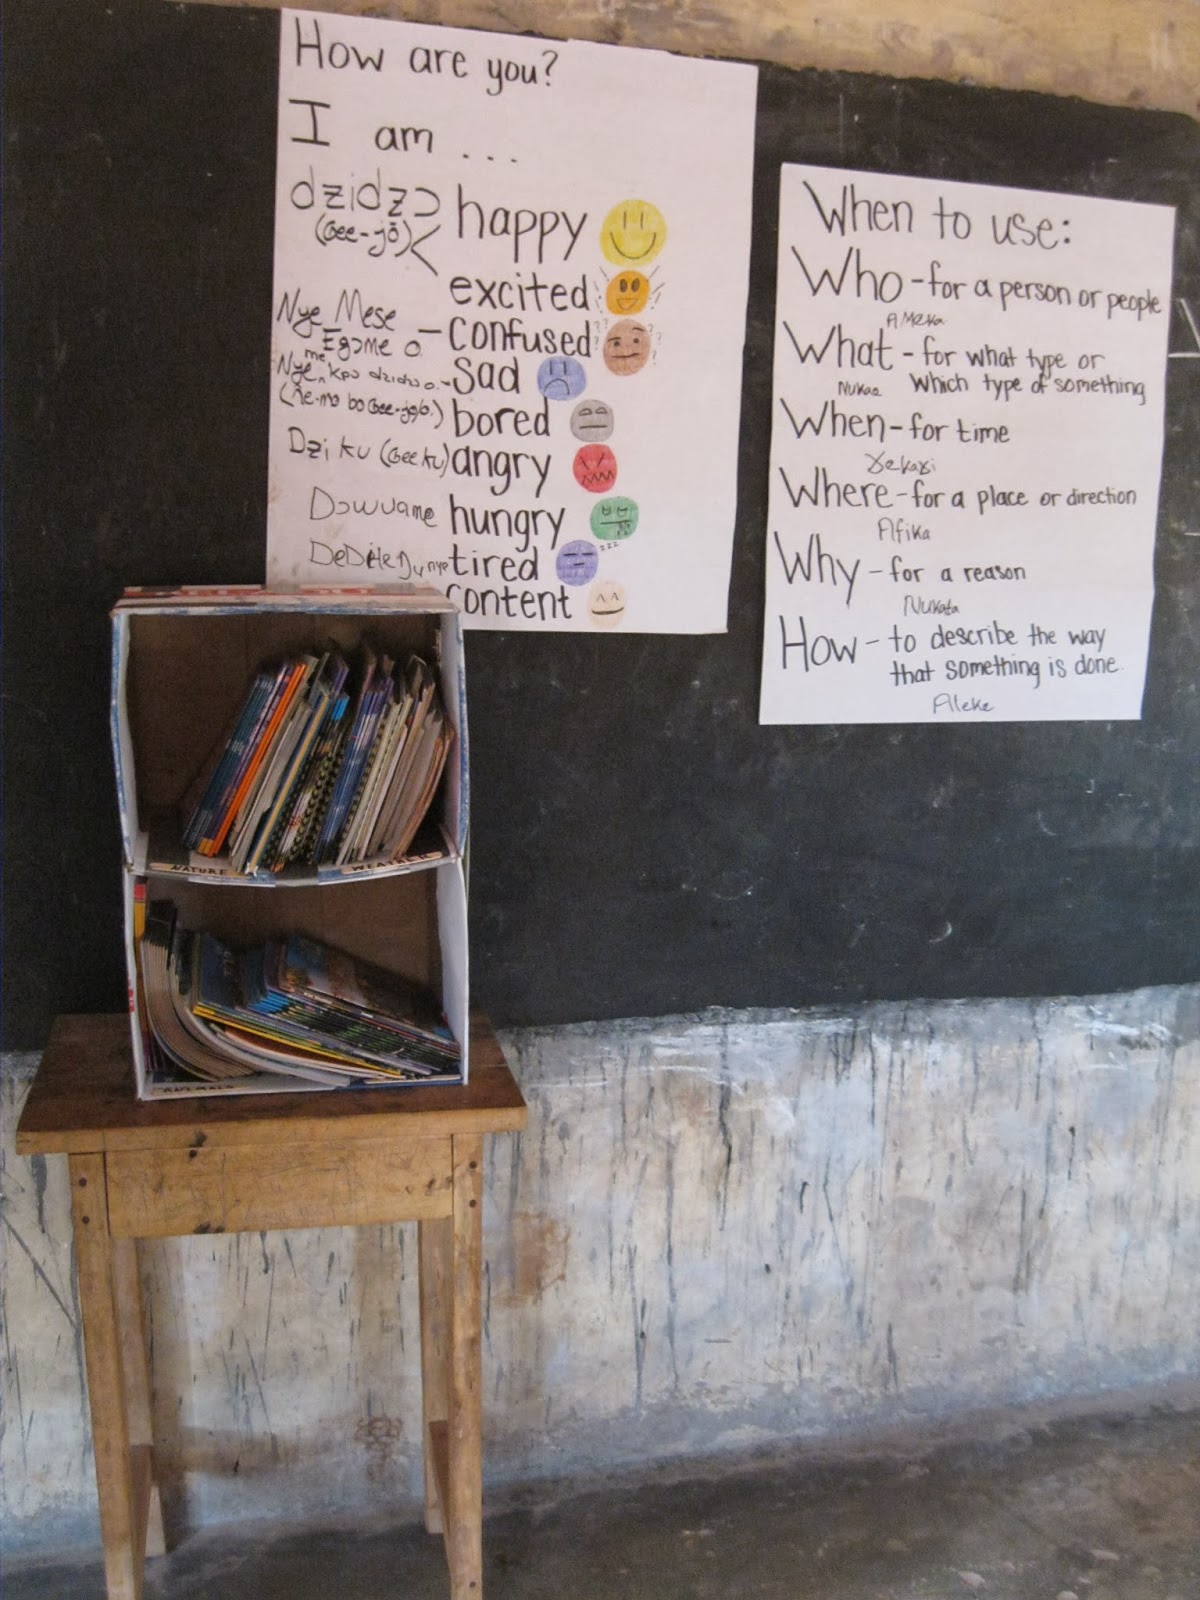 How are you?
I am ...
dzidzɔ happy
(Gee-jō)
excited
Nye Mese
Egɔme o. - confused
Nye me kpɔ dzidzɔ o. - sad
bored
Dzi ku (Gee ku) angry
Dɔwuame hungry
tired
content
When to use:
Who - for a person or people
Ameka
What - for what type or
Nukae which type of something
When - for time
Ɣekaɣi
Where - for a place or direction
Afika
Why - for a reason
Nukata
How - to describe the way
that something is done.
Aleke
NATURE WEATHER
ANIMALS